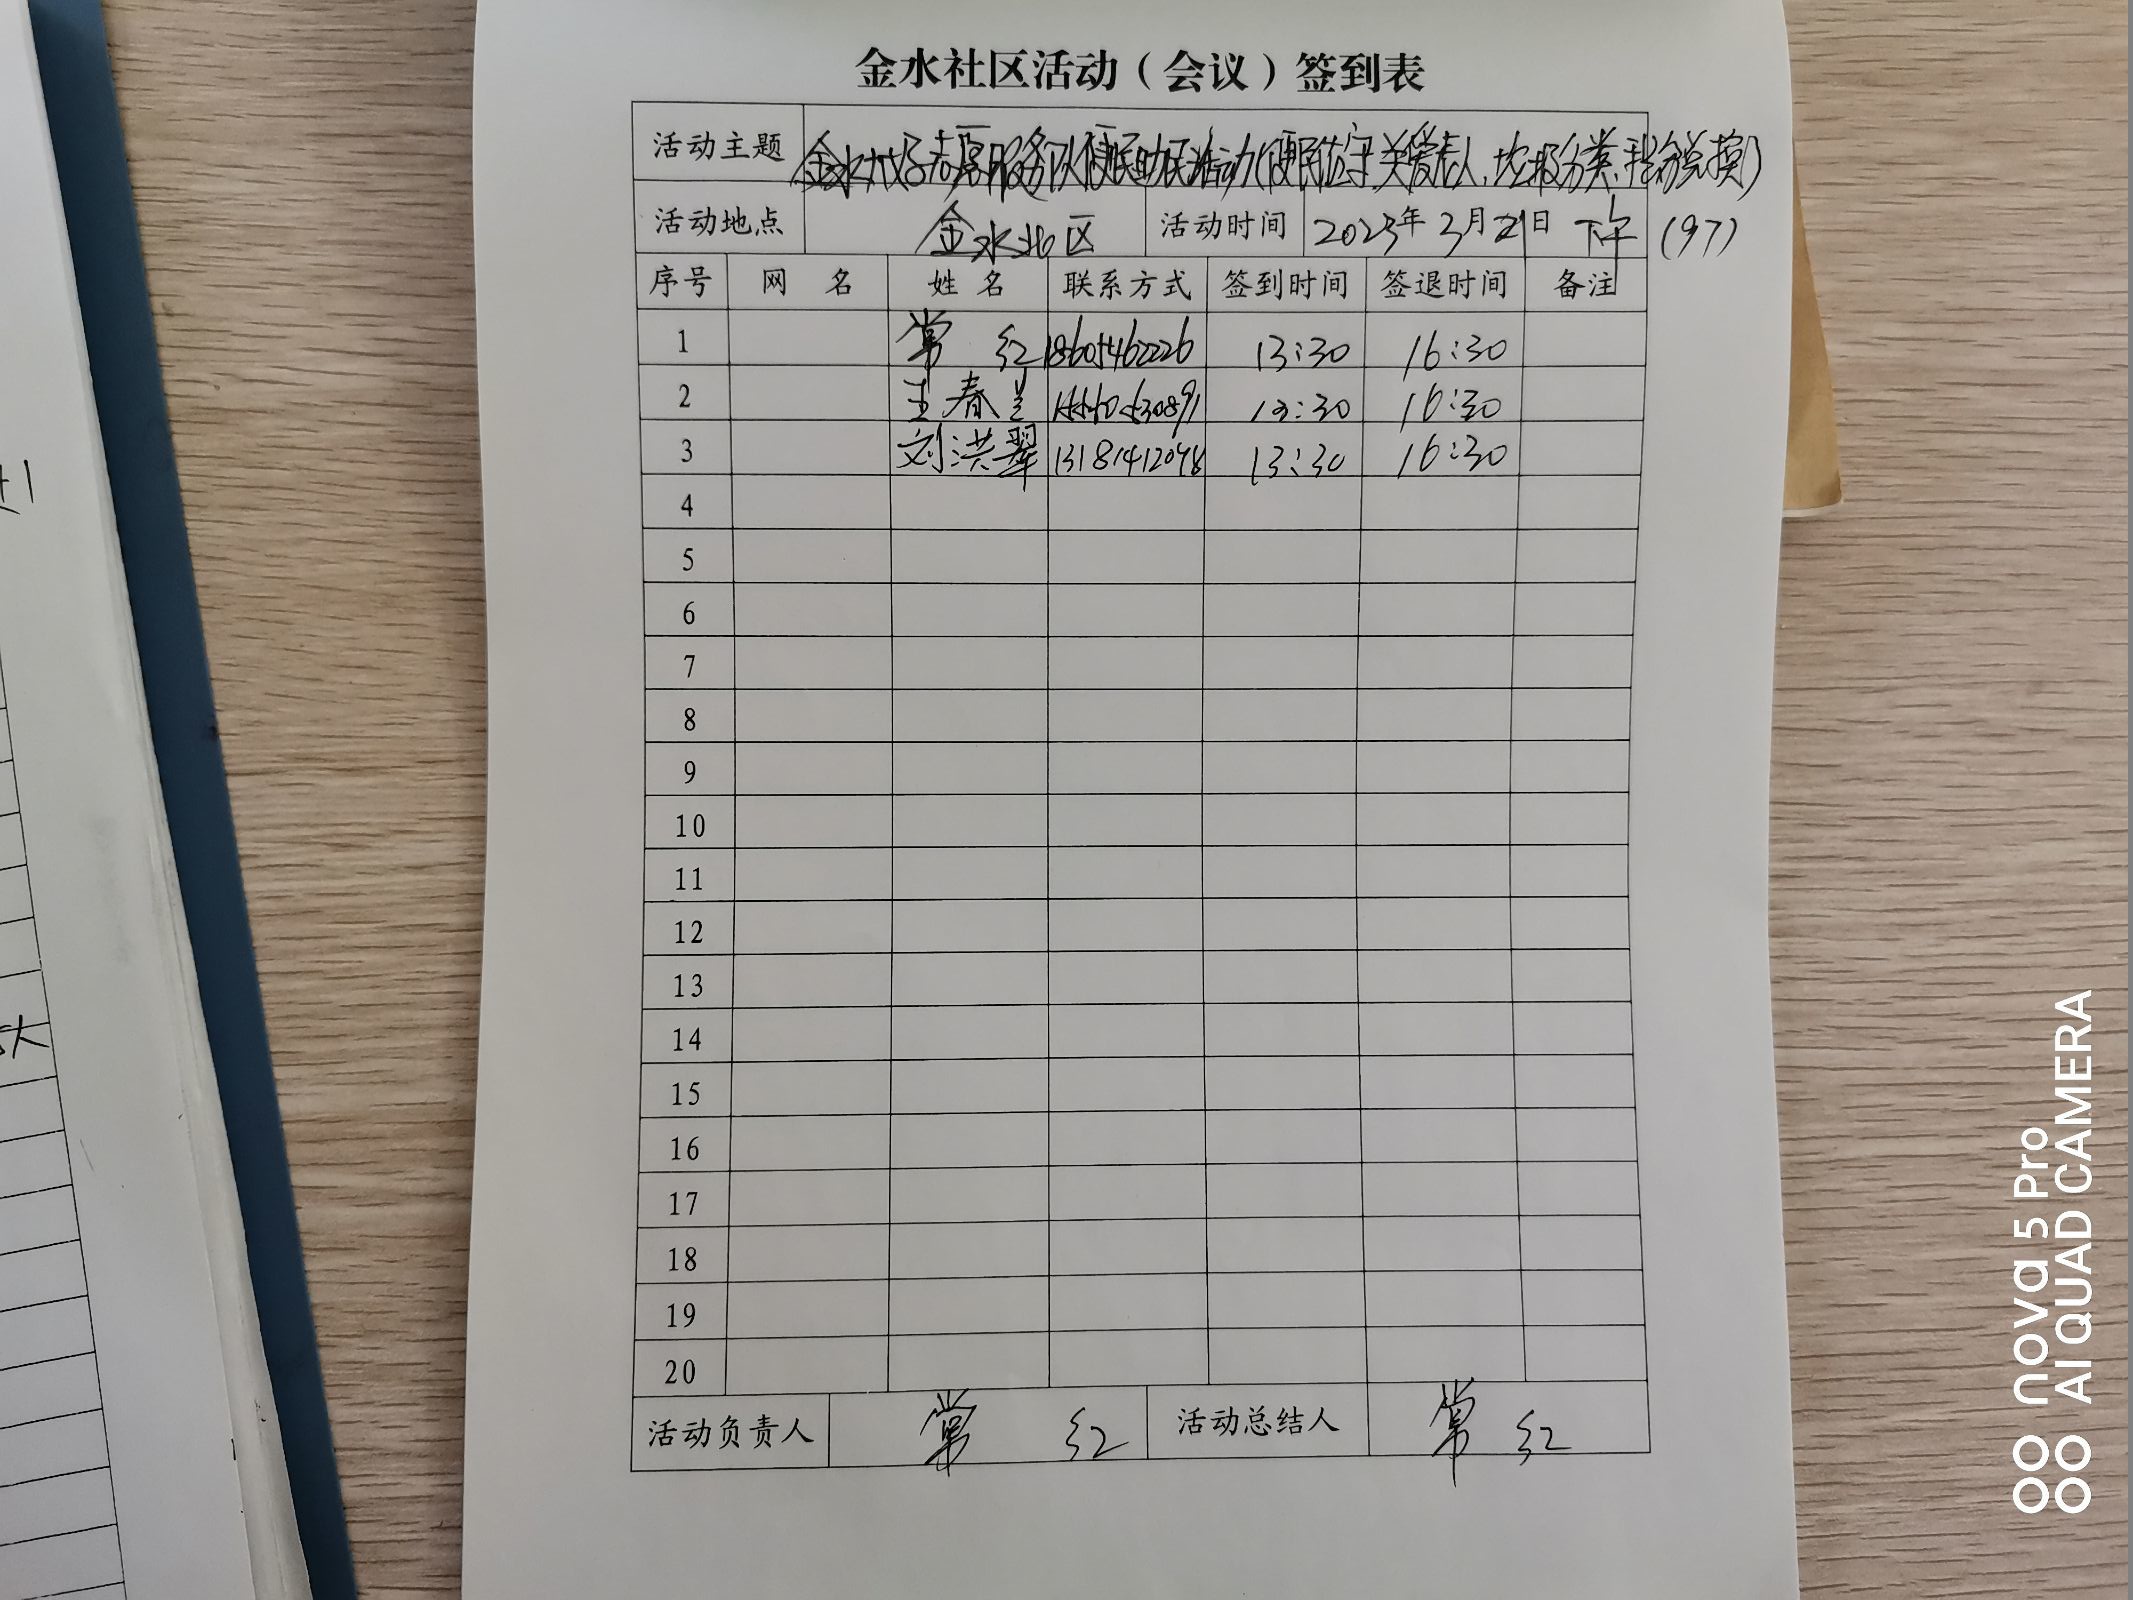 金水社区活动（会议）签到表
活动主题 金水 好志愿服务队便民助民活动(便民 关爱老人.垃圾分类.积分兑换)
活动地点 金水北区 活动时间 2023年3月21日 下午 (97)
序号 网 名 姓 名 联系方式 签到时间 签退时间 备注
1 常 红 18605462226 13:30 16:30
2 王春兰 13:30 16:30
3 刘洪翠 13:30 16:30
4
5
6
7
8
9
10
11
12
13
14
15
16
17
18
19
20
活动负责人 常 红 活动总结人 常 红
nova 5 Pro
AI QUAD CAMERA